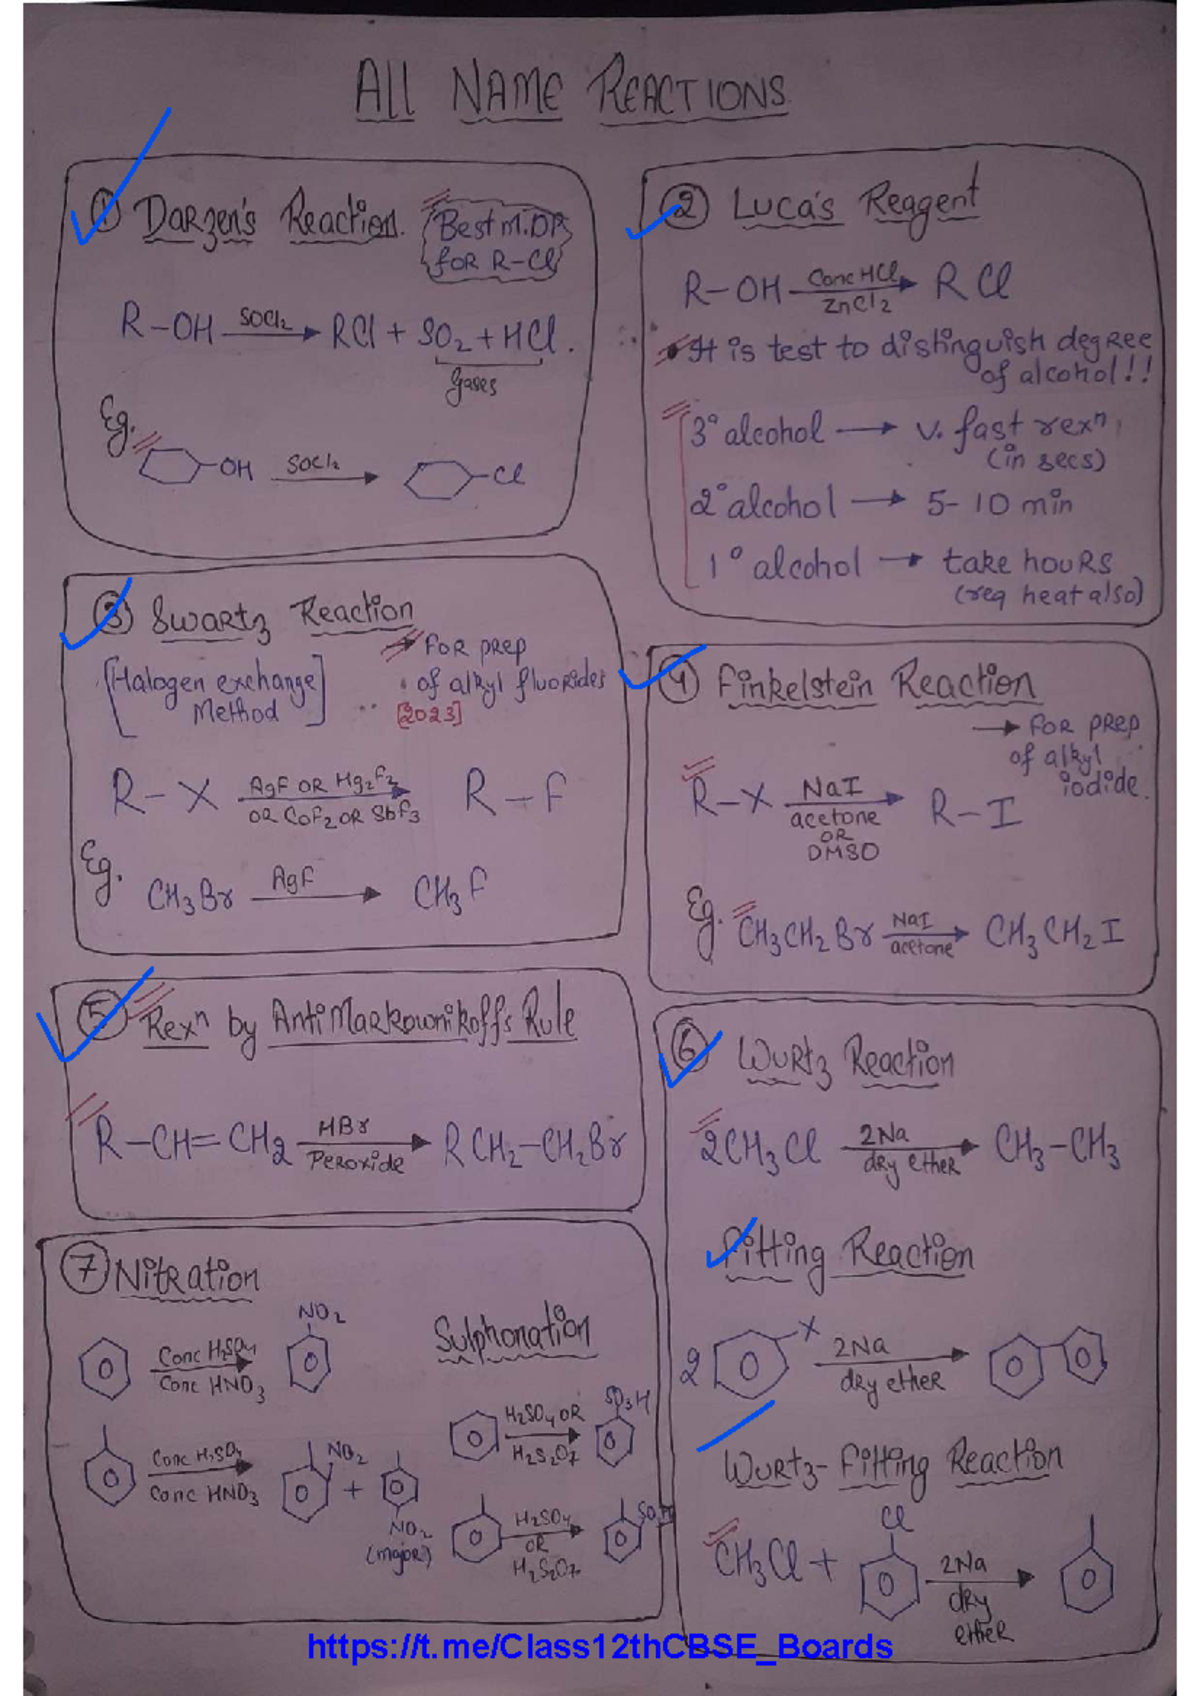 ALL NAME REACTIONS
① Darzen's Reaction.
Best M.OP
for R-Cl
R-OH SOCl2 → RCl + SO2 + HCl.
gases
Eg.
-OH SOCl2 → -Cl
② Luca's Reagent
R-OH Conc HCl ZnCl2 → RCl
It is test to distinguish degree
of alcohol!!
3° alcohol → v. fast rexn
(in secs)
2° alcohol → 5-10 min
1° alcohol → take hours
(req heat also)
③ Swartz Reaction
[Halogen exchange
Method]
→ for prep
of alkyl fluorides
[2023]
R-X AgF OR Hg2F2 OR CoF2 OR SbF3 → R-F
Eg.
CH3Br AgF → CH3F
④ Finkelstein Reaction
→ for prep
of alkyl
iodide.
R-X NaI acetone OR DMSO → R-I
Eg. CH3CH2Br NaI acetone → CH3CH2I
⑤ Rexn by AntiMarkownikoff's Rule
R-CH=CH2 HBr Peroxide → RCH2-CH2Br
⑥ Wurtz Reaction
2CH3Cl 2Na dry ether → CH3-CH3
Fitting Reaction
2 X 2Na dry ether →
Wurtz-Fitting Reaction
CH3Cl + Cl 2Na dry ether →
⑦ Nitration
Conc H2SO4 Conc HNO3 → NO2
Conc H2SO4 Conc HNO3 → NO2 + NO2
(major)
Sulphonation
H2SO4 OR H2S2O7 → SO3H
H2SO4 OR H2S2O7 →
https://t.me/Class12thCBSE_Boards